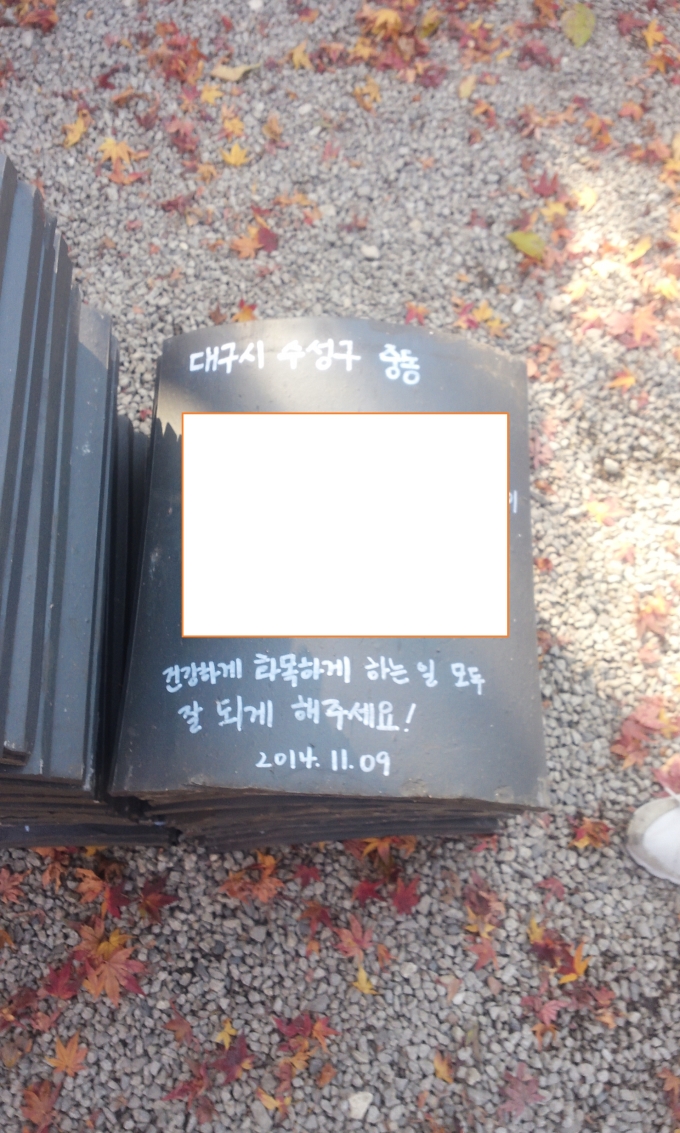 대구시 수성구 중동
이
건강하게 화목하게 하는 일 모두
잘 되게 해주세요!
2014. 11. 09